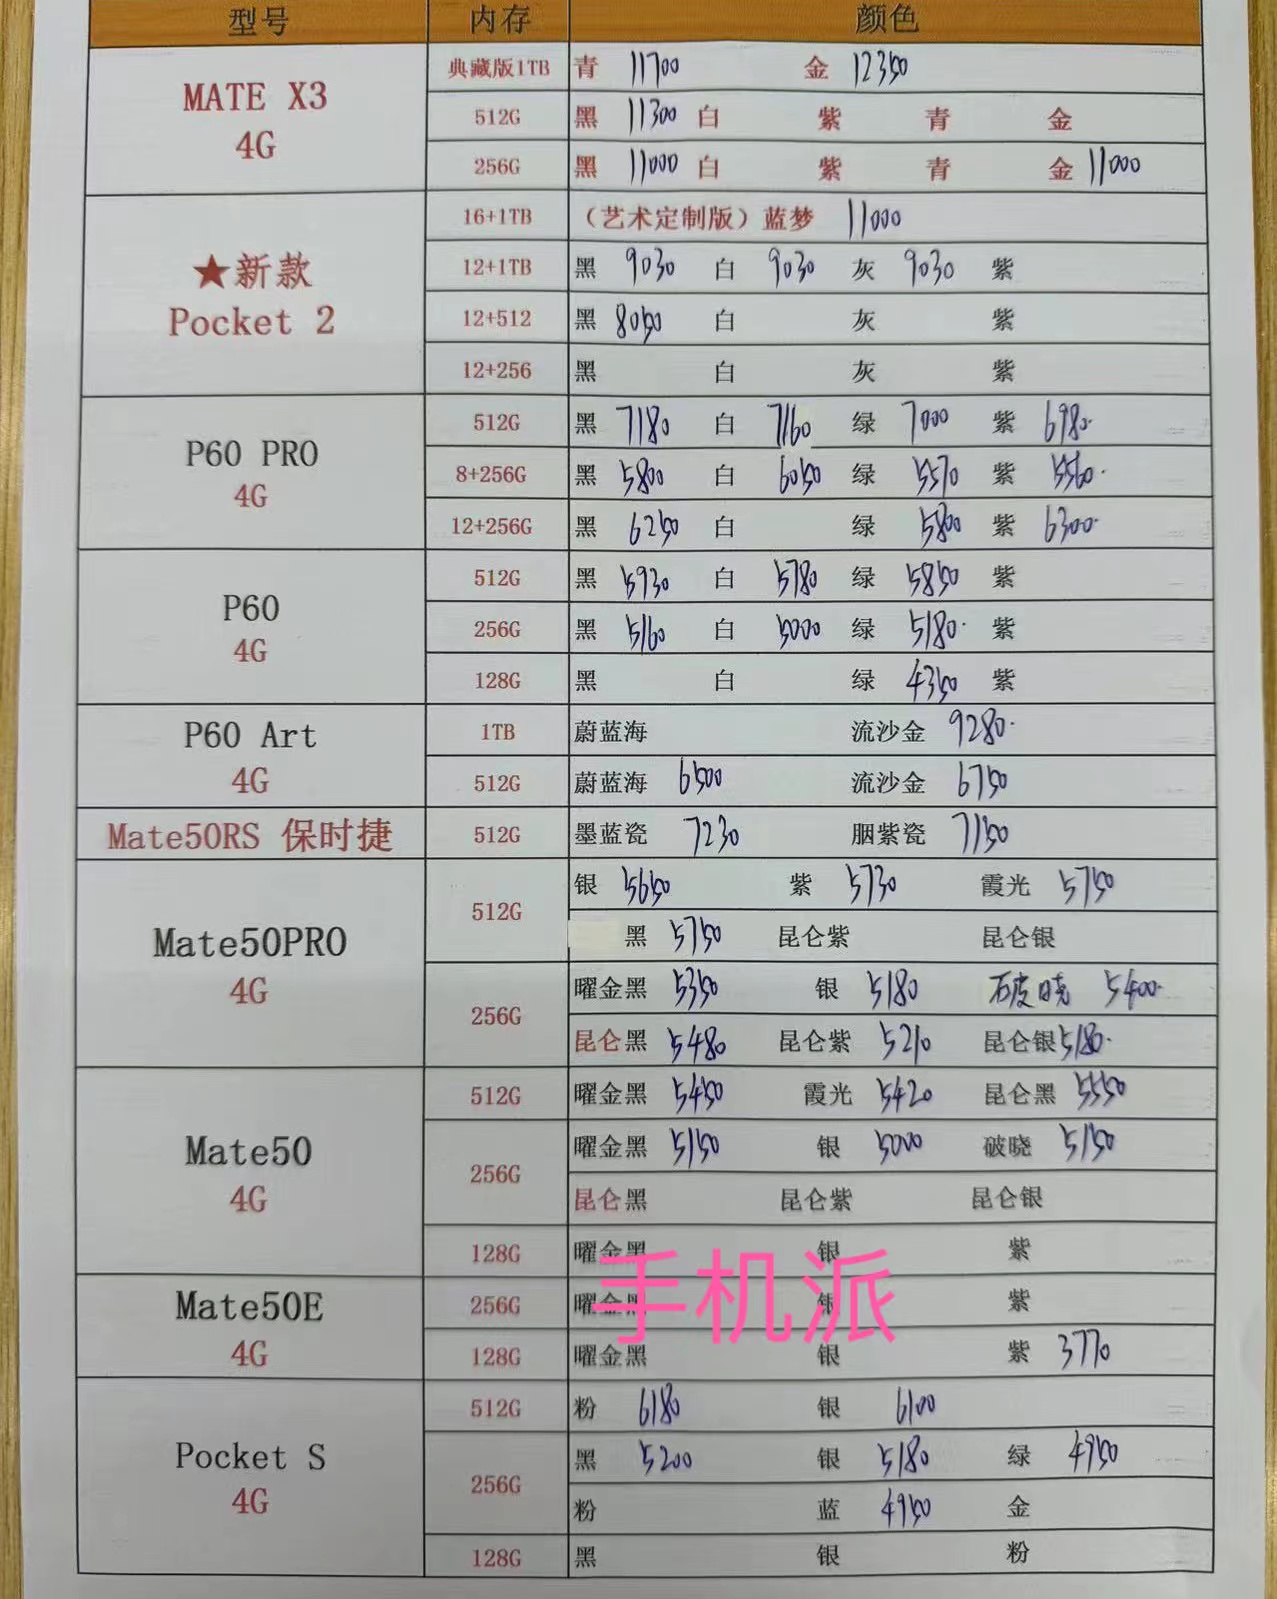 型号 内存 颜色
典藏版1TB 青 11700 金 12350
MATE X3
512G 黑 11300 白 紫 青 金
4G
256G 黑 11000 白 紫 青 金 11000
16+1TB （艺术定制版）蓝梦 11000
★新款
12+1TB 黑 9030 白 9030 灰 9030 紫
Pocket 2
12+512 黑 8050 白 灰 紫
12+256 黑 白 灰 紫
512G 黑 7180 白 7160 绿 7000 紫 6980
P60 PRO
8+256G 黑 5800 白 6050 绿 5570 紫 5560
4G
12+256G 黑 6250 白 绿 5800 紫 6300
512G 黑 5930 白 5780 绿 5850 紫
P60
256G 黑 5160 白 5000 绿 5180 紫
4G
128G 黑 白 绿 4350 紫
P60 Art
1TB 蔚蓝海 流沙金 9280
4G
512G 蔚蓝海 6500 流沙金 6750
Mate50RS 保时捷 512G 墨蓝瓷 7230 胭紫瓷 7150
银 5650 紫 5730 霞光 5750
512G
黑 5750 昆仑紫 昆仑银
Mate50PRO
4G
曜金黑 5350 银 5180 破晓 5400
256G
昆仑黑 5480 昆仑紫 5210 昆仑银 5180
512G 曜金黑 5450 霞光 5420 昆仑黑 5550
Mate50
曜金黑 5150 银 5000 破晓 5150
256G
4G
昆仑黑 昆仑紫 昆仑银
128G 曜金黑 银 紫
手机派
Mate50E
256G 曜金黑 银 紫
4G
128G 曜金黑 银 紫 3770
512G 粉 6180 银 6100
Pocket S
黑 5200 银 5180 绿 4950
256G
4G
粉 蓝 4950 金
128G 黑 银 粉